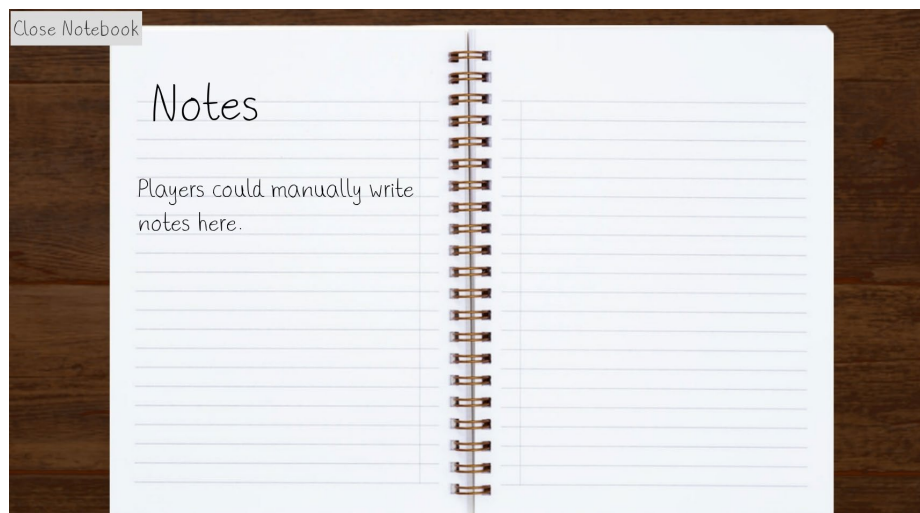 Close Notebook
Notes
Players could manually write
notes here.